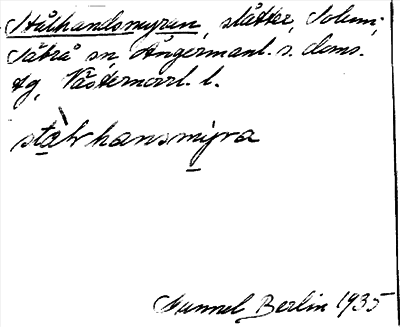 Stålhandsmyran, slåtter, Solum,
Säbrå sn, Ångermanl. s. doms.
tg, Västernorrl. l.
stàlhansmyra
Gunnel Berlin 1935